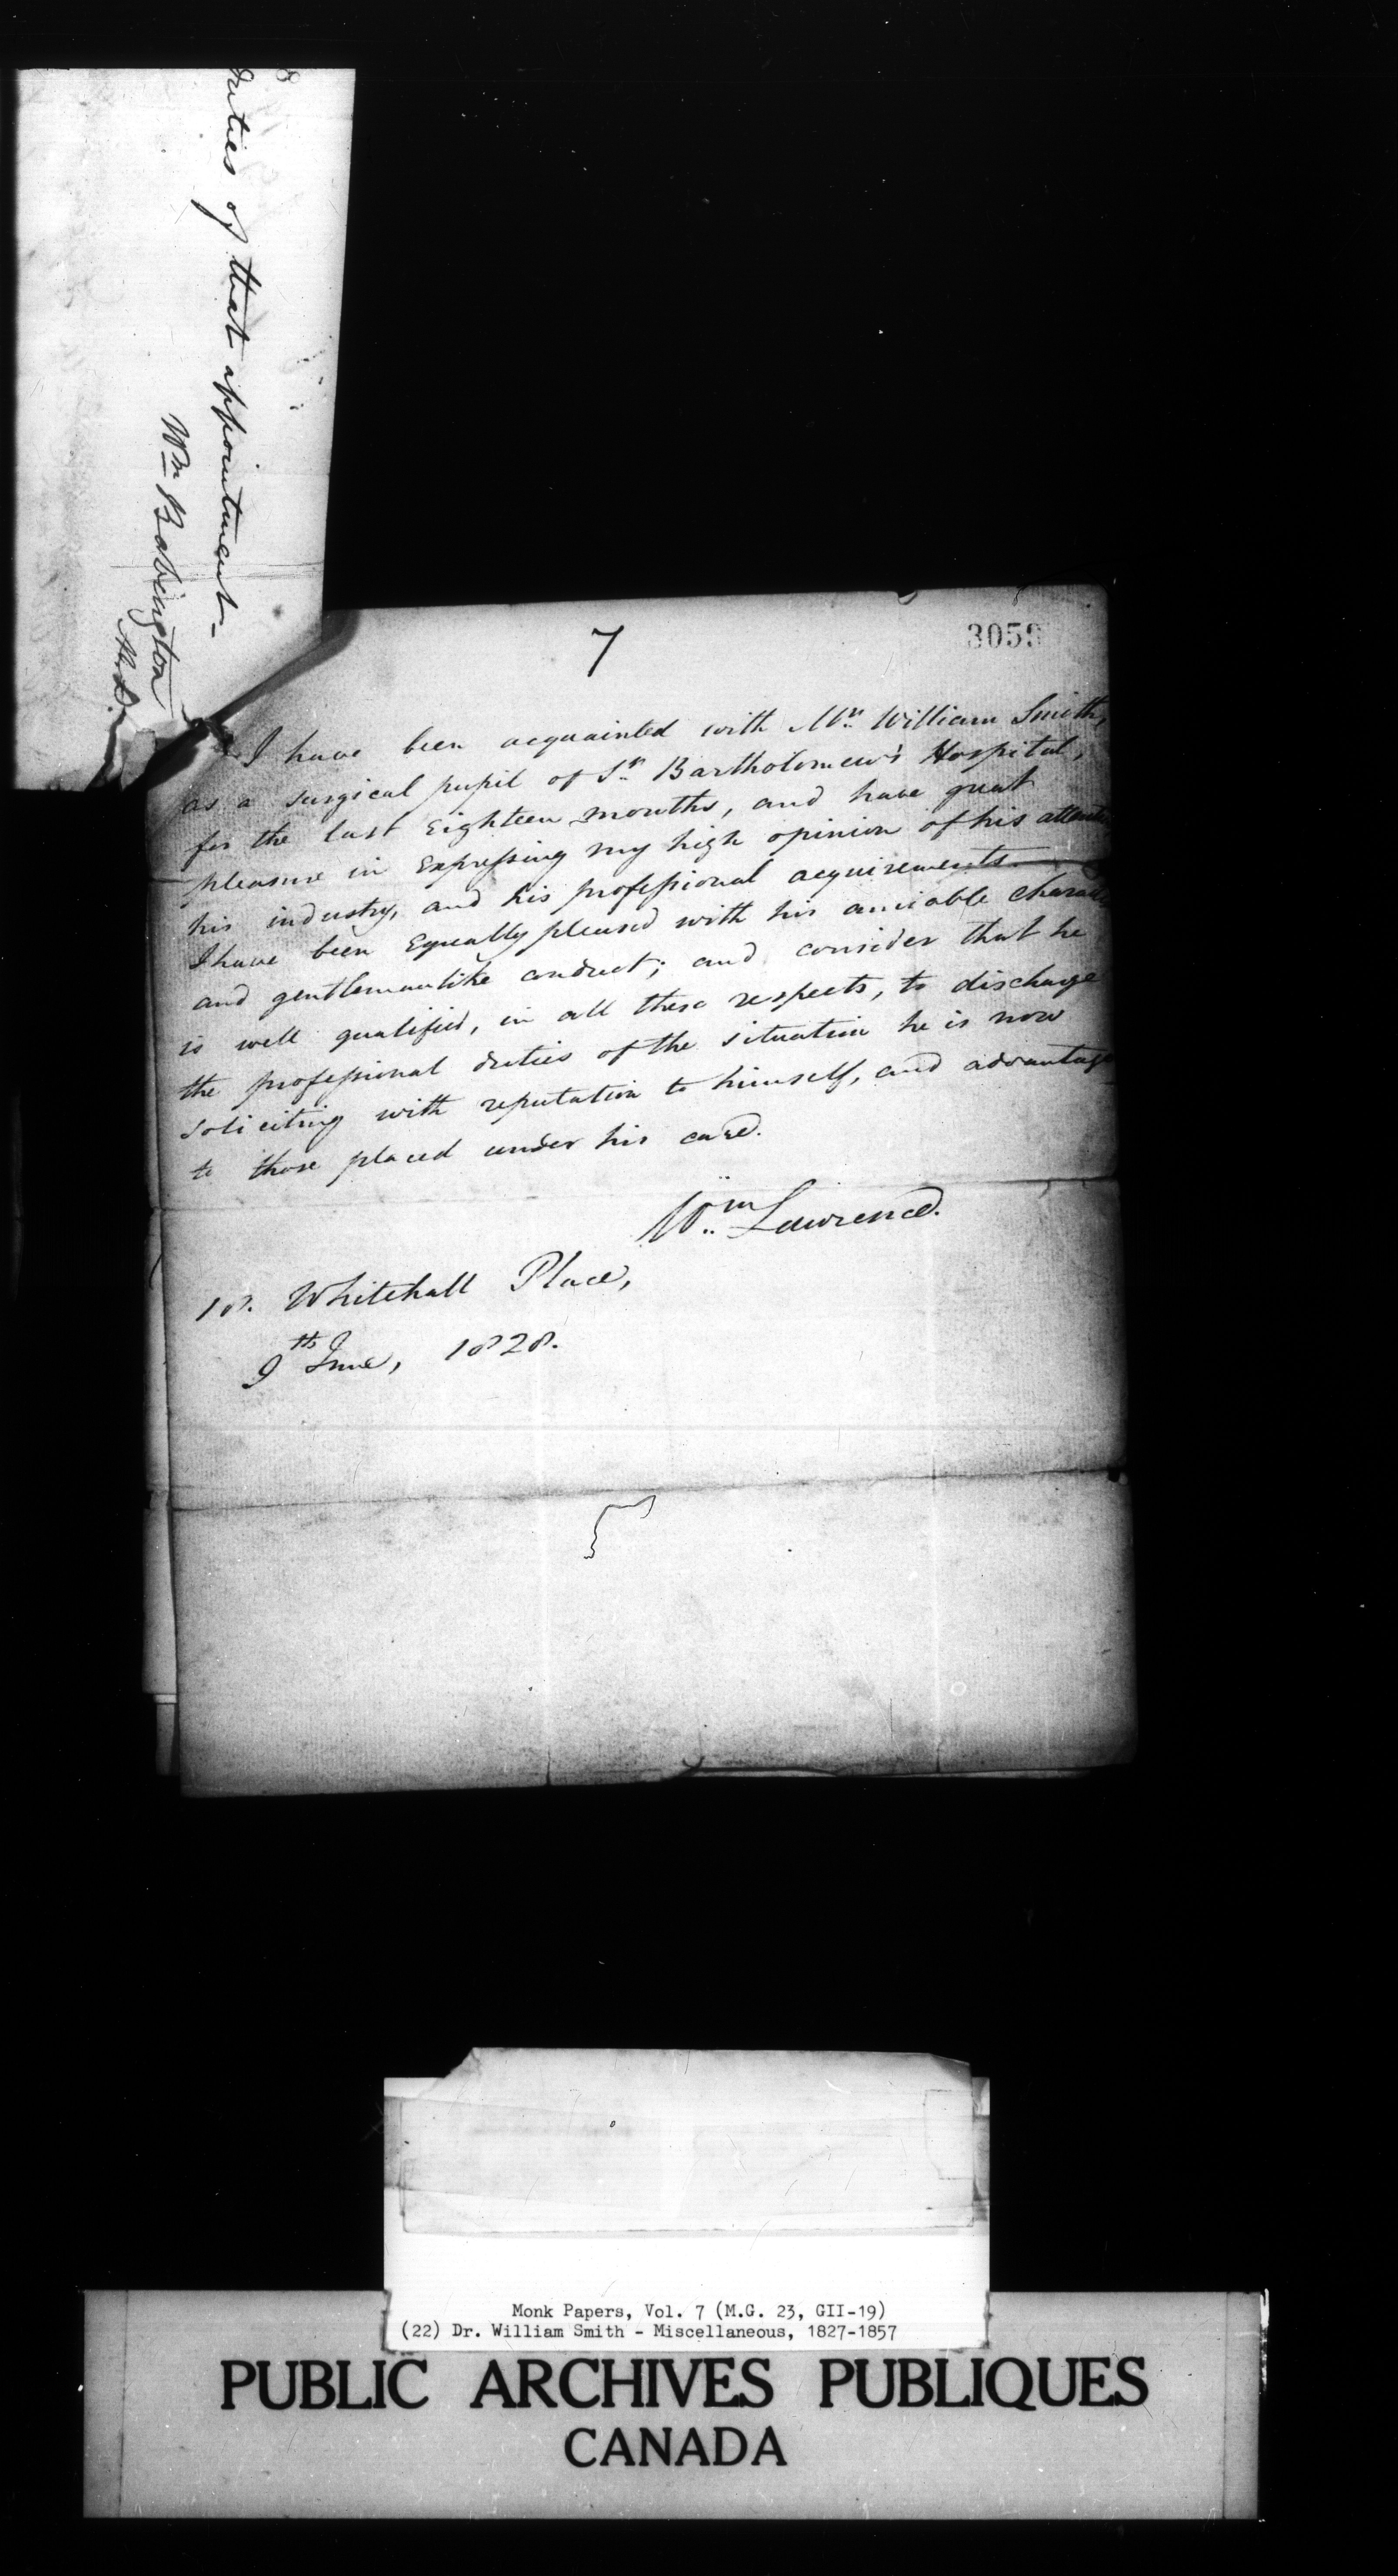 duties of that appointment-
Wm Babington
M.D.
7
3059
I have been acquainted with Mr. William Smith,
as a surgical pupil of St. Bartholomew's Hospital,
for the last Eighteen months, and have great
pleasure in Expressing my high opinion of his
his industry, and his professional acquirements.
I have been Equally pleased with his amiable
and gentlemanlike conduct; and consider that he
is well qualified, in all these respects, to discharge
the professional duties of the situation he is now
soliciting with reputation to himself, and advantage
to those placed under his care.
Wm. Lawrence.
18. Whitehall Place,
9th June, 1828.
Monk Papers, Vol. 7 (M.G. 23, GII-19)
(22) Dr. William Smith - Miscellaneous, 1827-1857
PUBLIC ARCHIVES PUBLIQUES
CANADA